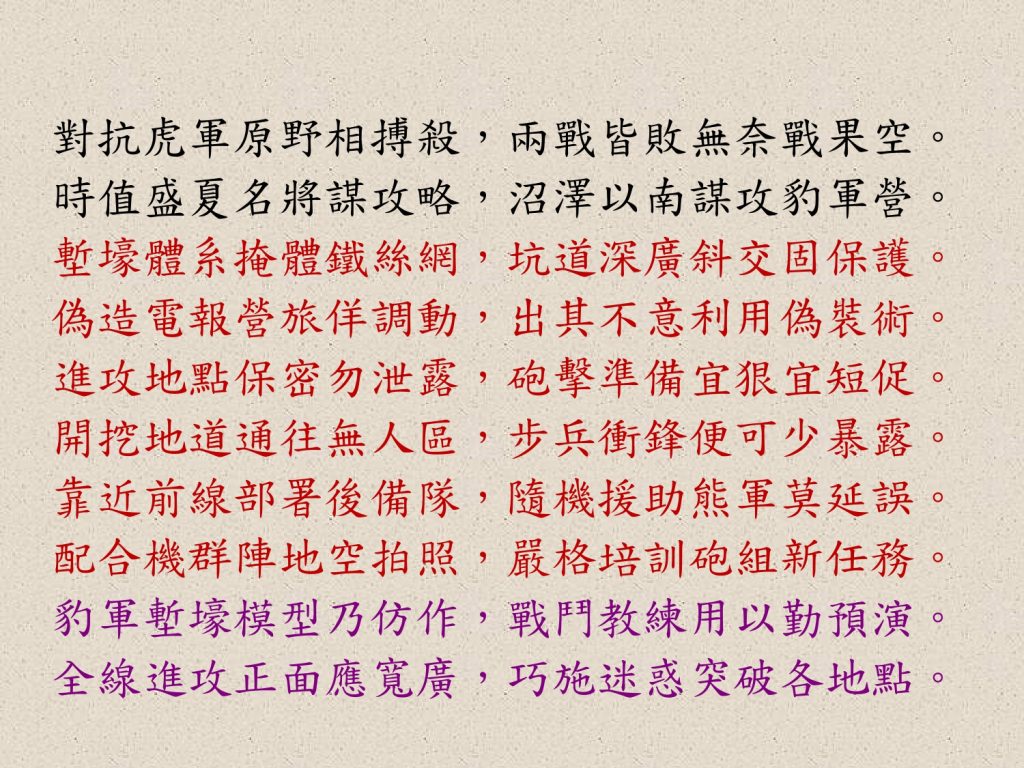 對抗虎軍原野相搏殺，兩戰皆敗無奈戰果空。
時值盛夏名將謀攻略，沼澤以南謀攻豹軍營。
塹壕體系掩體鐵絲網，坑道深廣斜交固保護。
偽造電報營旅佯調動，出其不意利用偽裝術。
進攻地點保密勿泄露，砲擊準備宜狠宜短促。
開挖地道通往無人區，步兵衝鋒便可少暴露。
靠近前線部署後備隊，隨機援助熊軍莫延誤。
配合機群陣地空拍照，嚴格培訓砲組新任務。
豹軍塹壕模型乃仿作，戰鬥教練用以勤預演。
全線進攻正面應寬廣，巧施迷惑突破各地點。